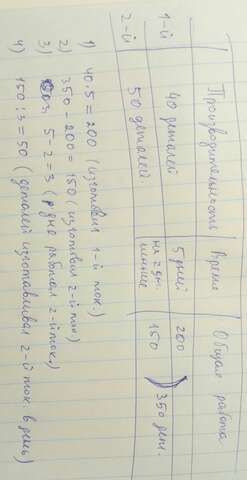 Производительность Время Общая работа
1-й 40 деталей 5 дней 200
2-й 50 деталей на 2 дн. меньше 150
350 дет.
1) 40·5=200 (изготовил 1-й ток.)
2) 350-200=150 (изготовил 2-й ток)
3) 5-2=3 (дня работал 2-й ток.)
4) 150:3=50 (деталей изготавливал 2-й ток. в день)